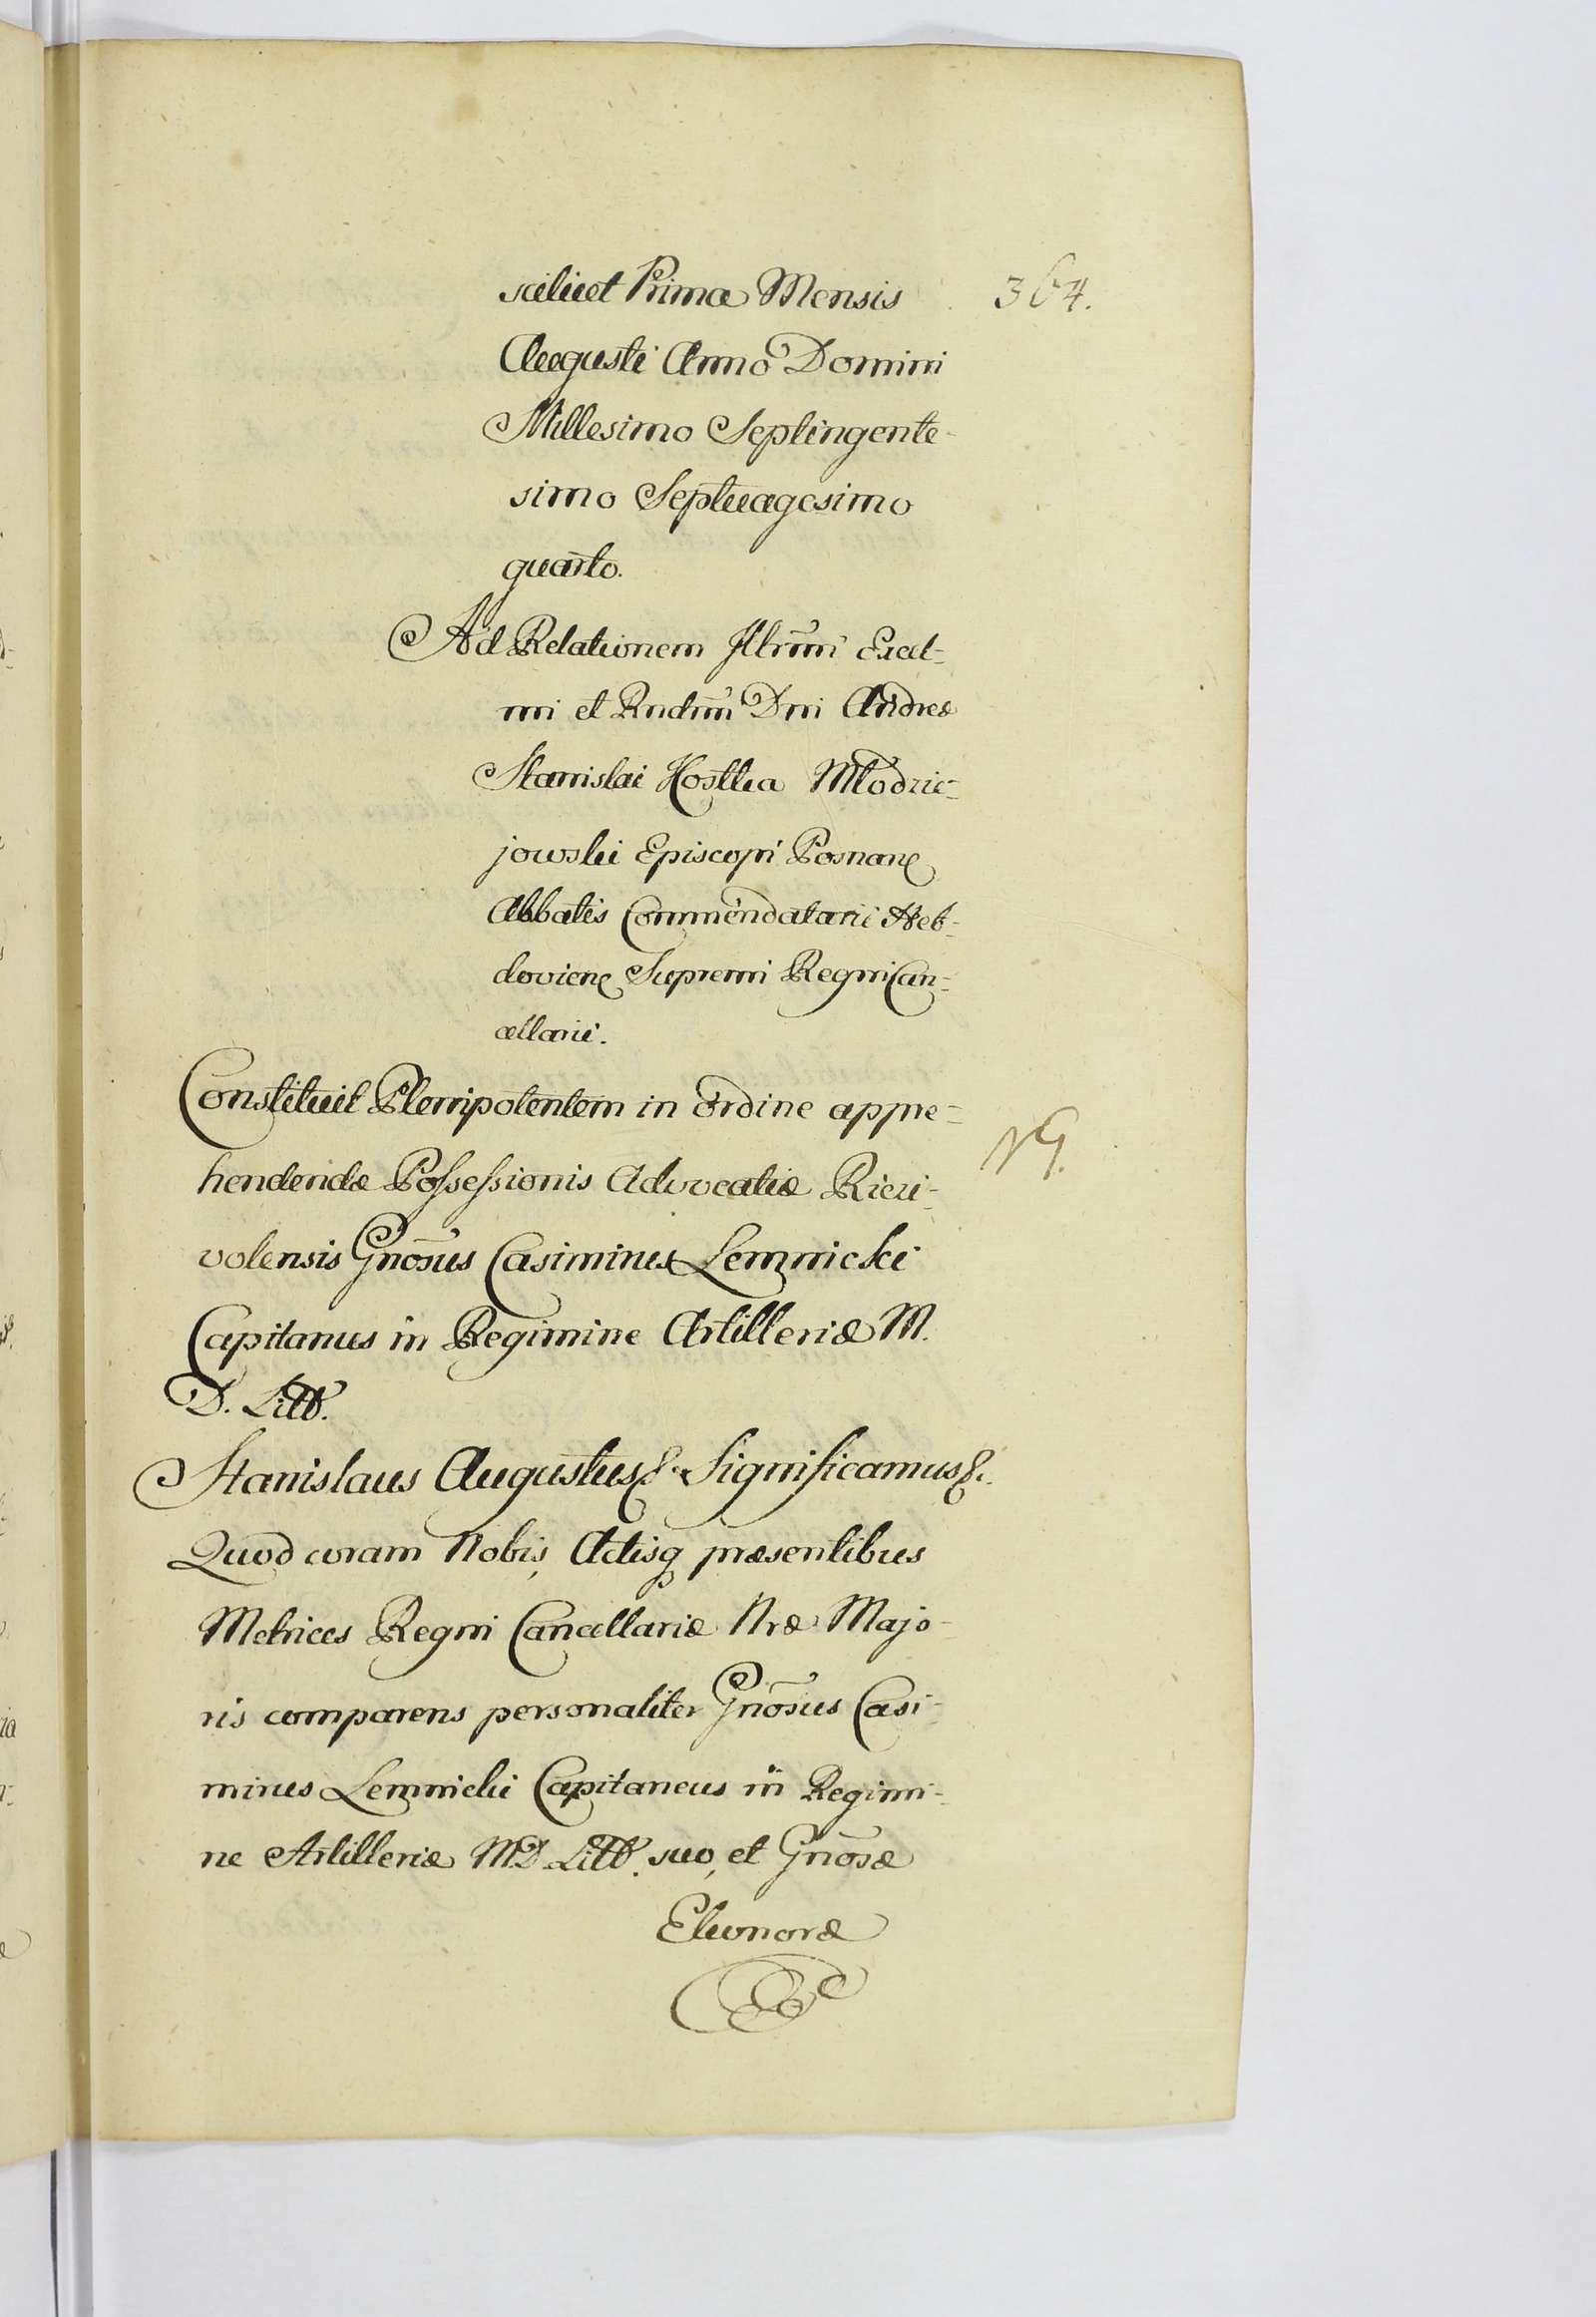 scilicet Prima Mensis 364.
Augusti Anno Domini
Millesimo Septingente-
simo Septuagesimo
quarto.
Ad Relationem Illrmi Excel-
mi et Rndmi Dni Andreæ
Stanislai Kostka Młodzie-
jowski Episcopi Posnan
Abbatis Commendatarii Heb-
doviens Supremi Regni Can-
cellarii.
Constituit Plenipotentem in ordine appre-
hendendæ Possessionis Advocatiæ Riczi-
volensis Gnosus Casimirus Lemnicki
Capitanus in Regimine Artilleriæ M.
D. Litt.
Stanislaus Augustus &. Significamus &.
Quod coram Nobis, Actisq præsentibus
Metrices Regni Cancellariæ Nræ Majo-
ris comparens personaliter Gnosus Casi-
mirus Lemnicki Capitaneus in Regimi-
ne Artilleriæ MD Litt. suo, et Gnosæ
Eleonoræ